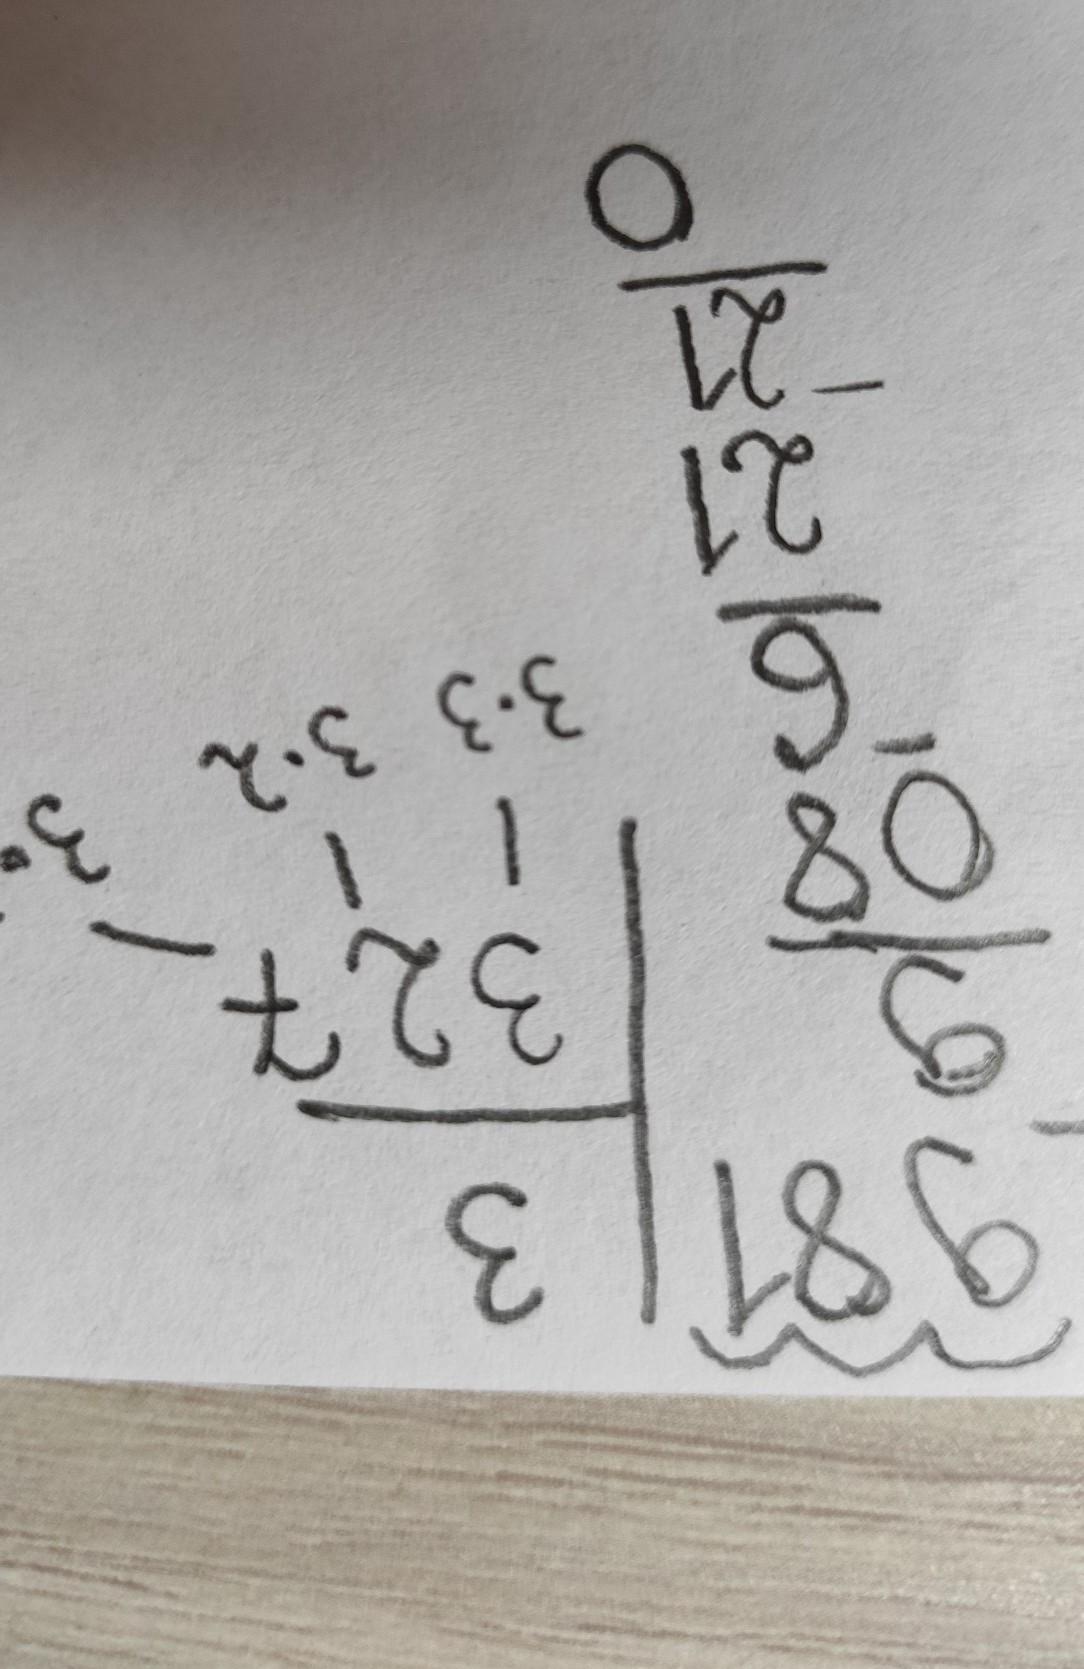 981 3
- 9 327
08 3·3 3·2 3·
- 6
21
- 21
0